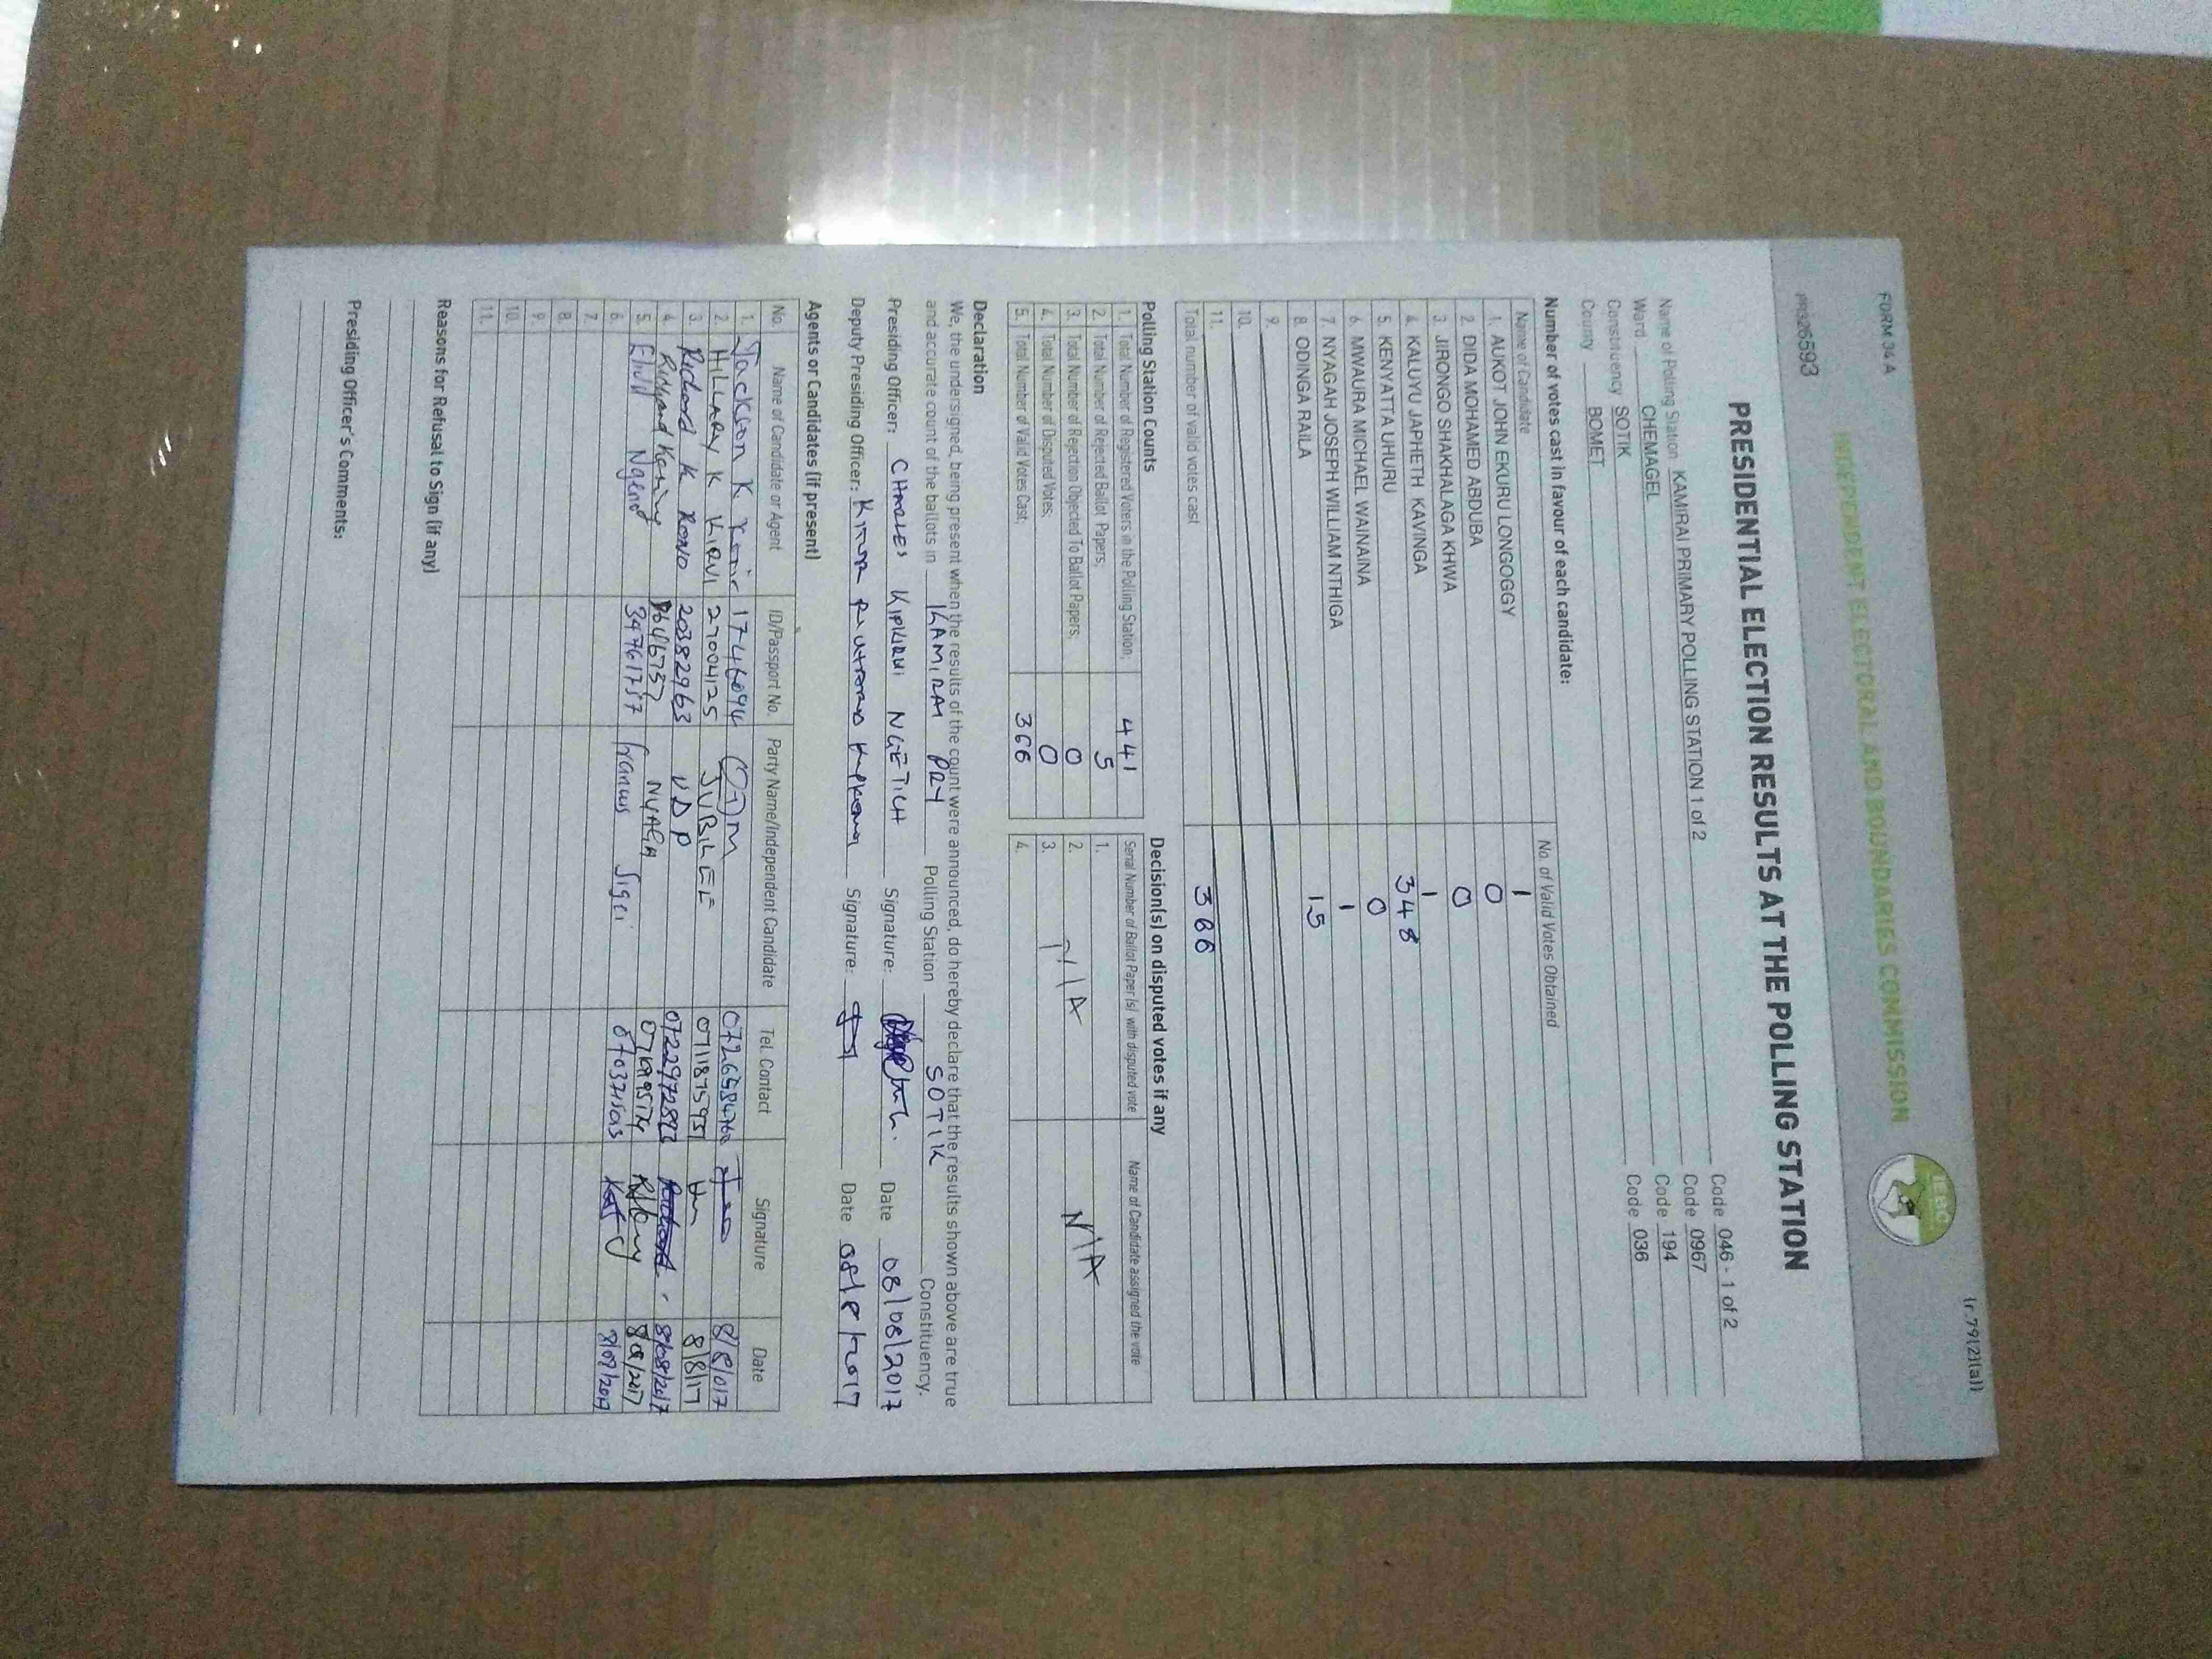 FORM 34 A
(r.79(2)(a))
INDEPENDENT ELECTORAL AND BOUNDARIES COMMISSION
IEBC
PR926593
PRESIDENTIAL ELECTION RESULTS AT THE POLLING STATION
Name of Polling Station KAMIRAI PRIMARY POLLING STATION 1 of 2 Code 046 - 1 of 2
Ward CHEMAGEL Code 0967
Constituency SOTIK Code 194
County BOMET Code 036
Number of votes cast in favour of each candidate:
Name of Candidate No. of Valid Votes Obtained
1. AUKOT JOHN EKURU LONGOGGY 1
2. DIDA MOHAMED ABDUBA 0
3. JIRONGO SHAKHALAGA KHWA 0
4. KALUYU JAPHETH KAVINGA 1
5. KENYATTA UHURU 348
6. MWAURA MICHAEL WAINAINA 0
7. NYAGAH JOSEPH WILLIAM NTHIGA 1
8. ODINGA RAILA 15
9.
10.
11.
Total number of valid votes cast 366
Polling Station Counts
1. Total Number of Registered Voters in the Polling Station: 441
2. Total Number of Rejected Ballot Papers; 5
3. Total Number of Rejection Objected To Ballot Papers; 0
4. Total Number of Disputed Votes; 0
5. Total Number of Valid Votes Cast; 366
Decision(s) on disputed votes if any
Serial Number of Ballot Paper (s) with disputed vote Name of Candidate assigned the vote
1.
2. N/A N/A
3.
4.
Declaration
We, the undersigned, being present when the results of the count were announced, do hereby declare that the results shown above are true
and accurate count of the ballots in KAMIRAI PRY Polling Station SOTIK Constituency.
Presiding Officer: CHARLES KIPKIRUI NGETICH Signature: Date 08/08/2017
Deputy Presiding Officer: Signature: Date 08/8/2017
Agents or Candidates (if present)
No. Name of Candidate or Agent ID/Passport No. Party Name/Independent Candidate Tel. Contact Signature Date
1. Jackson K 17446094 ODM 0726584760 8/8/017
2. HILLARY K KIRUI 27004125 JUBILEE 0711875951 8/8/17
3. Richard K RONO 20382963 UDP 0722972893 8/08/2017
4. NYAGA 8/08/2017
5. Ngeno 34761757 Francis Sigei
6.
7.
8.
9.
10.
11.
Reasons for Refusal to Sign (if any)
Presiding Officer's Comments: